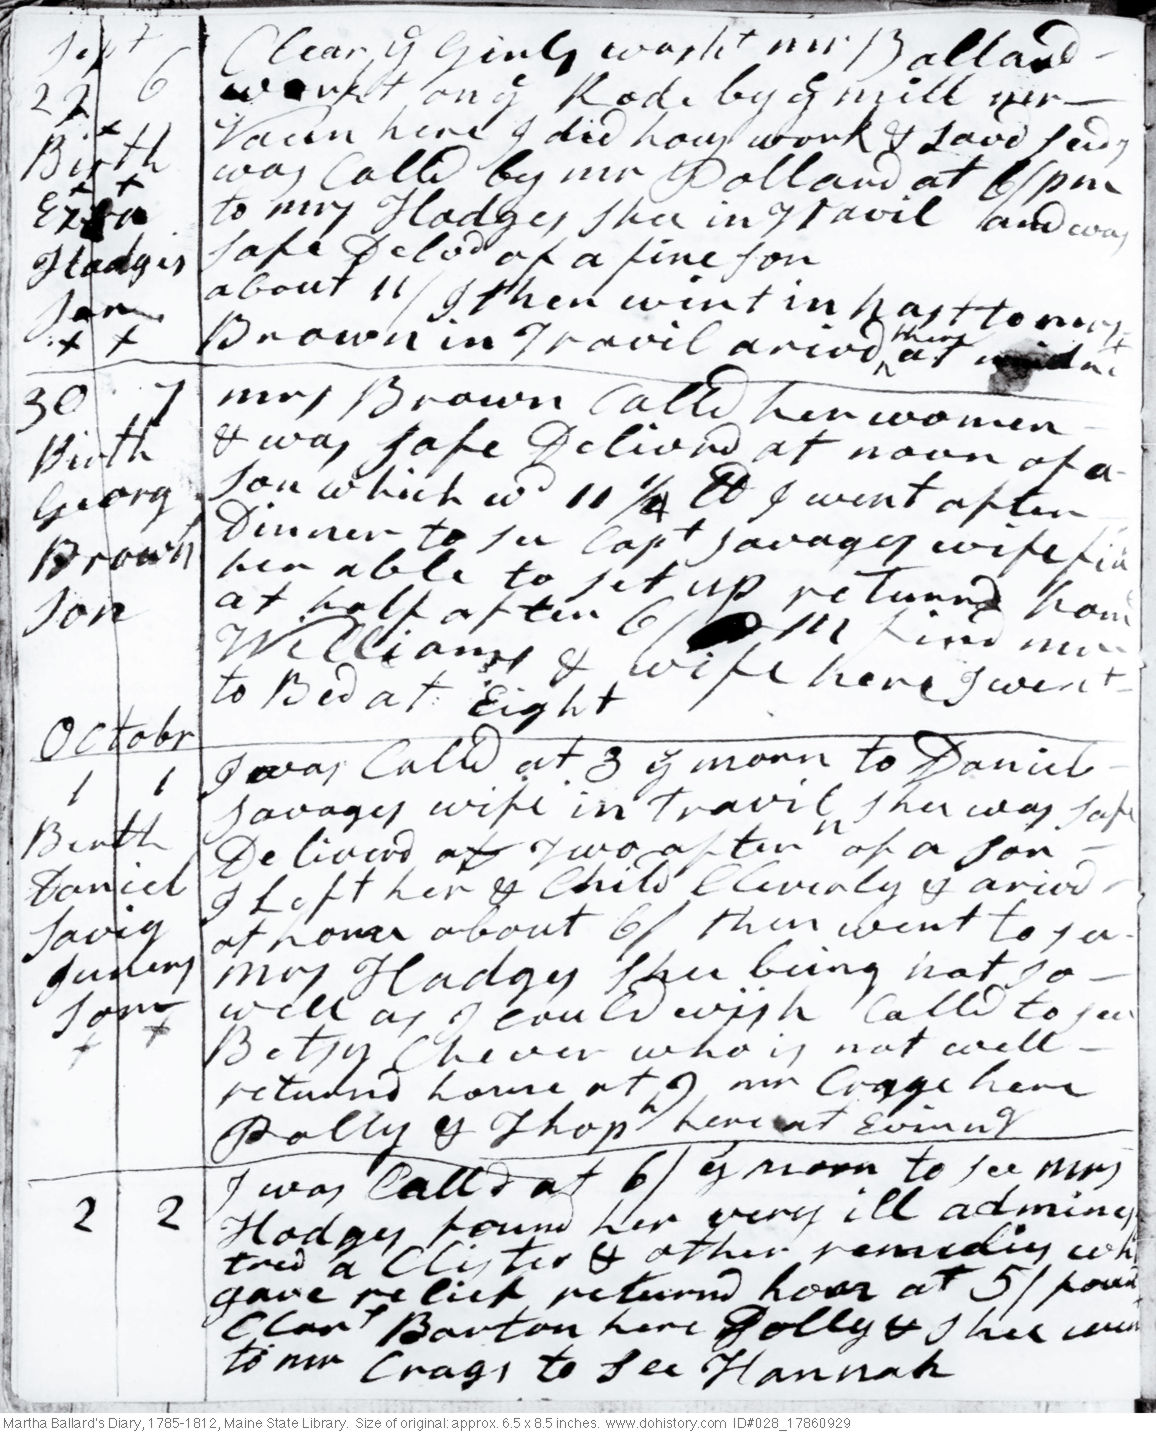 Sept
22 6
Birth
Ezra
Hodges
Son
x x
Clear ye Girls washt mr Ballard
workt on ye Rode by ye mill mr
Vaun here I did hous work & Savd Seeds
was Calld by mr Pollard at 6/pm
to mrs Hodges Shee in Travil and was
Safe Delvd of a fine Son
about 11/ I then wint in hast to mrs
Brown in Travil arivd there at midnt
30 7
Birth
Georg
Brown
Son
mrs Brown Calld her women
& was Safe Delivrd at noon of a
Son which wd 11 1/4 lb I went after
Dinner to see Capt Savages wife find
her able to set up returnd home
at half after 6/ pm find mr
Williams & wife here I went
to Bed at Eight
Octobr
1 1
Berth
Daniel
Savig
Juners
Son
x x
I was Calld at 3 ye morn to Daniel
Savages wife in Travil Shee was Safe
Deliverd at Two aftern of a Son
I Left her & Child Cleverly & arivd
at home about 6/ then went to see
mrs Hodges Shee being not so
well as I could wish Calld to see
Betsy Chever who is not well
returnd home at 7 mr Crage here
Polly & Thoph here at Evining
2 2
I was Calld at 6/ ye morn to see mrs
Hodges found her very ill admines
tred a Clister & other remedies wh
gave relief returnd home at 5/ found
Clart Barton here Dolly & Shee went
to mr Crags to See Hannah
Martha Ballard's Diary, 1785-1812, Maine State Library. Size of original: approx. 6.5 x 8.5 inches. www.dohistory.com ID#028_17860929